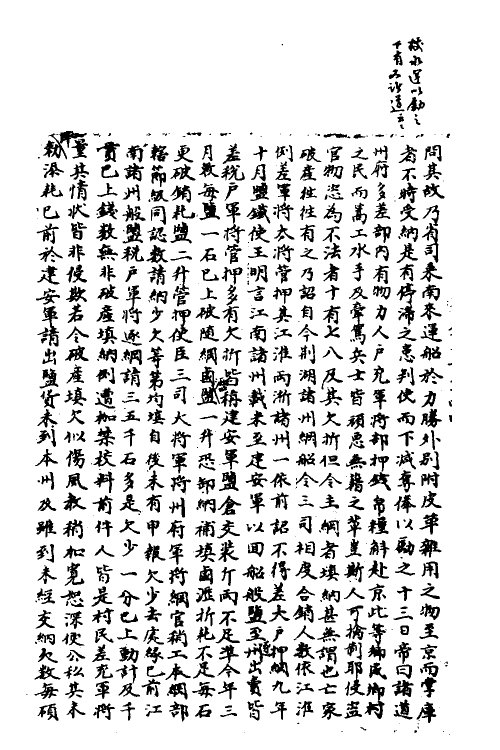 按水運以勸之
下有又許道云云
問其故乃省司來南米運船於力勝外別附皮革雜用之物至京而掌庫
者不時受納是有停滯之患判使而下減奪俸以勵之十三日帝曰諸道
州府多差部內有物力人戶充軍將部押錢帛糧斛赴京此等鄉民鄉村
之民而篙工水手及牽駕兵士皆頑愚無籍之輩豈斯人可擒制耶侵盜
官物恣為不法者十有七八及其欠折但令主綱者填納甚無謂也亡家
破產往往有之乃詔自今荊湖諸州綱船令三司相度合銷人數依江淮
例差軍將大將管押其江淮兩浙諸州一依前詔不得差大戶押綱九年
十月鹽鐵使王明言江南諸州載米至建安軍以回船般鹽至州出賣皆
差稅戶軍將管押多有欠折皆稱建安軍鹽倉交裝斤兩不足準今年三
月敕每鹽一石已上破隨綱鹵鹽一升恐卸納補填鹵滙折耗不足每石
更破銷耗鹽二升管押使臣三司大將軍將州府軍將綱官稍工本綱部
轄節級同認數請納少欠等第均填自後未有申報欠少去處緣已前江
南諸州般鹽稅戶軍將逐綱請三五千石多是欠少一分已上動計及千
貫已上錢數無非破產填納例遭枷禁校料前件人皆是村民差充軍將
量其情狀皆非侵欺若令破產填欠似傷風教稍加寬恕深便公私其未
敕添耗已前於建安軍請出鹽貨未到本州及雖到未經交納欠數每碩